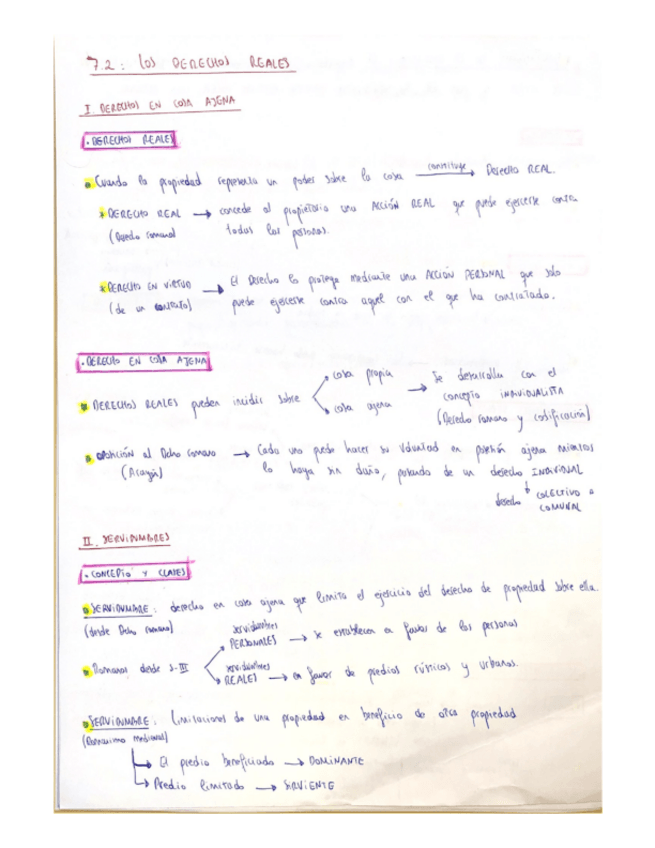 7.2: LOS DERECHOS REALES
I DERECHOS EN COSA AJENA
• DERECHOS REALES
Cuando la propiedad representa un poder sobre la cosa constituye → Derecho REAL.
* DERECHO REAL → concede al propietario una ACCIÓN REAL que puede ejercerse contra
(Derecho romano) todas las personas.
* DERECHO EN VIRTUD → El Derecho lo protege mediante una ACCIÓN PERSONAL que solo
(de un contrato) puede ejercerse contra aquel con el que ha contratado.
• DERECHO EN COSA AJENA
DERECHOS REALES pueden incidir sobre
cosa propia
cosa ajena
→ Se desarrolla con el
concepto INDIVIDUALISTA
(Derecho romano y codificación)
OPOSICIÓN al Dcho romano → Cada uno puede hacer su voluntad en posesión ajena mientras
(Aragón) lo haga sin daño, partiendo de un derecho INDIVIDUAL
derecho COLECTIVO o
COMUNAL
II. SERVIDUMBRES
• CONCEPTO Y CLASES
SERVIDUMBRE: derecho en cosa ajena que limita el ejercicio del derecho de propiedad sobre ella.
(desde Dcho romano)
Romanos desde S-III
servidumbres
PERSONALES → se establecen a favor de las personas
servidumbres
REALES → en favor de predios rústicos y urbanos.
SERVIDUMBRE: limitaciones de una propiedad en beneficio de otra propiedad
(Romanismo medieval)
→ El predio beneficiado → DOMINANTE
→ Predio limitado → SIRVIENTE